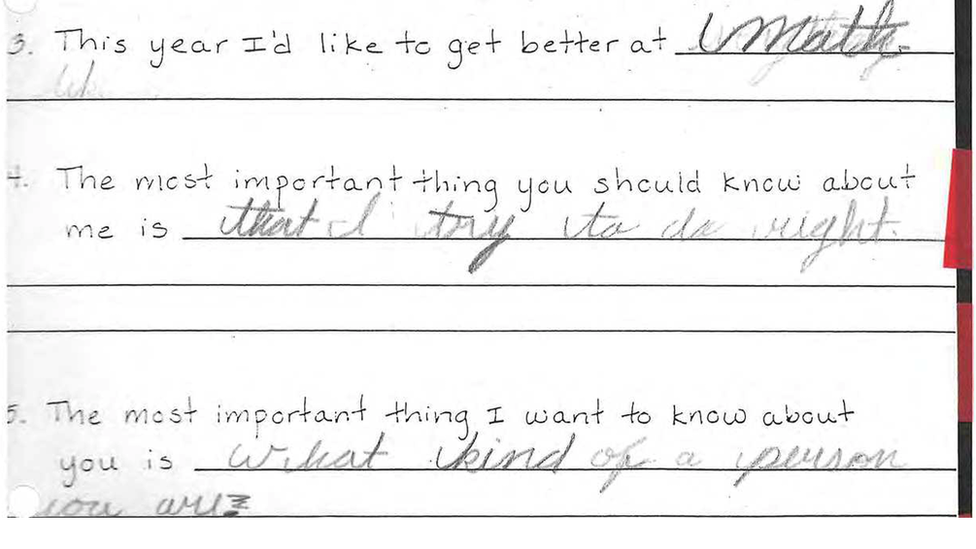 3. This year I'd like to get better at Math.
4. The most important thing you should know about
me is that I try to do right.
5. The most important thing I want to know about
you is what kind of a person
you are?